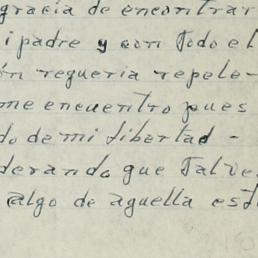 gracia de encontrar
i padre y con todo el
ón regueria repele-
me encuentro pues
do de mi libertad -
derando que talve
algo de aguella est